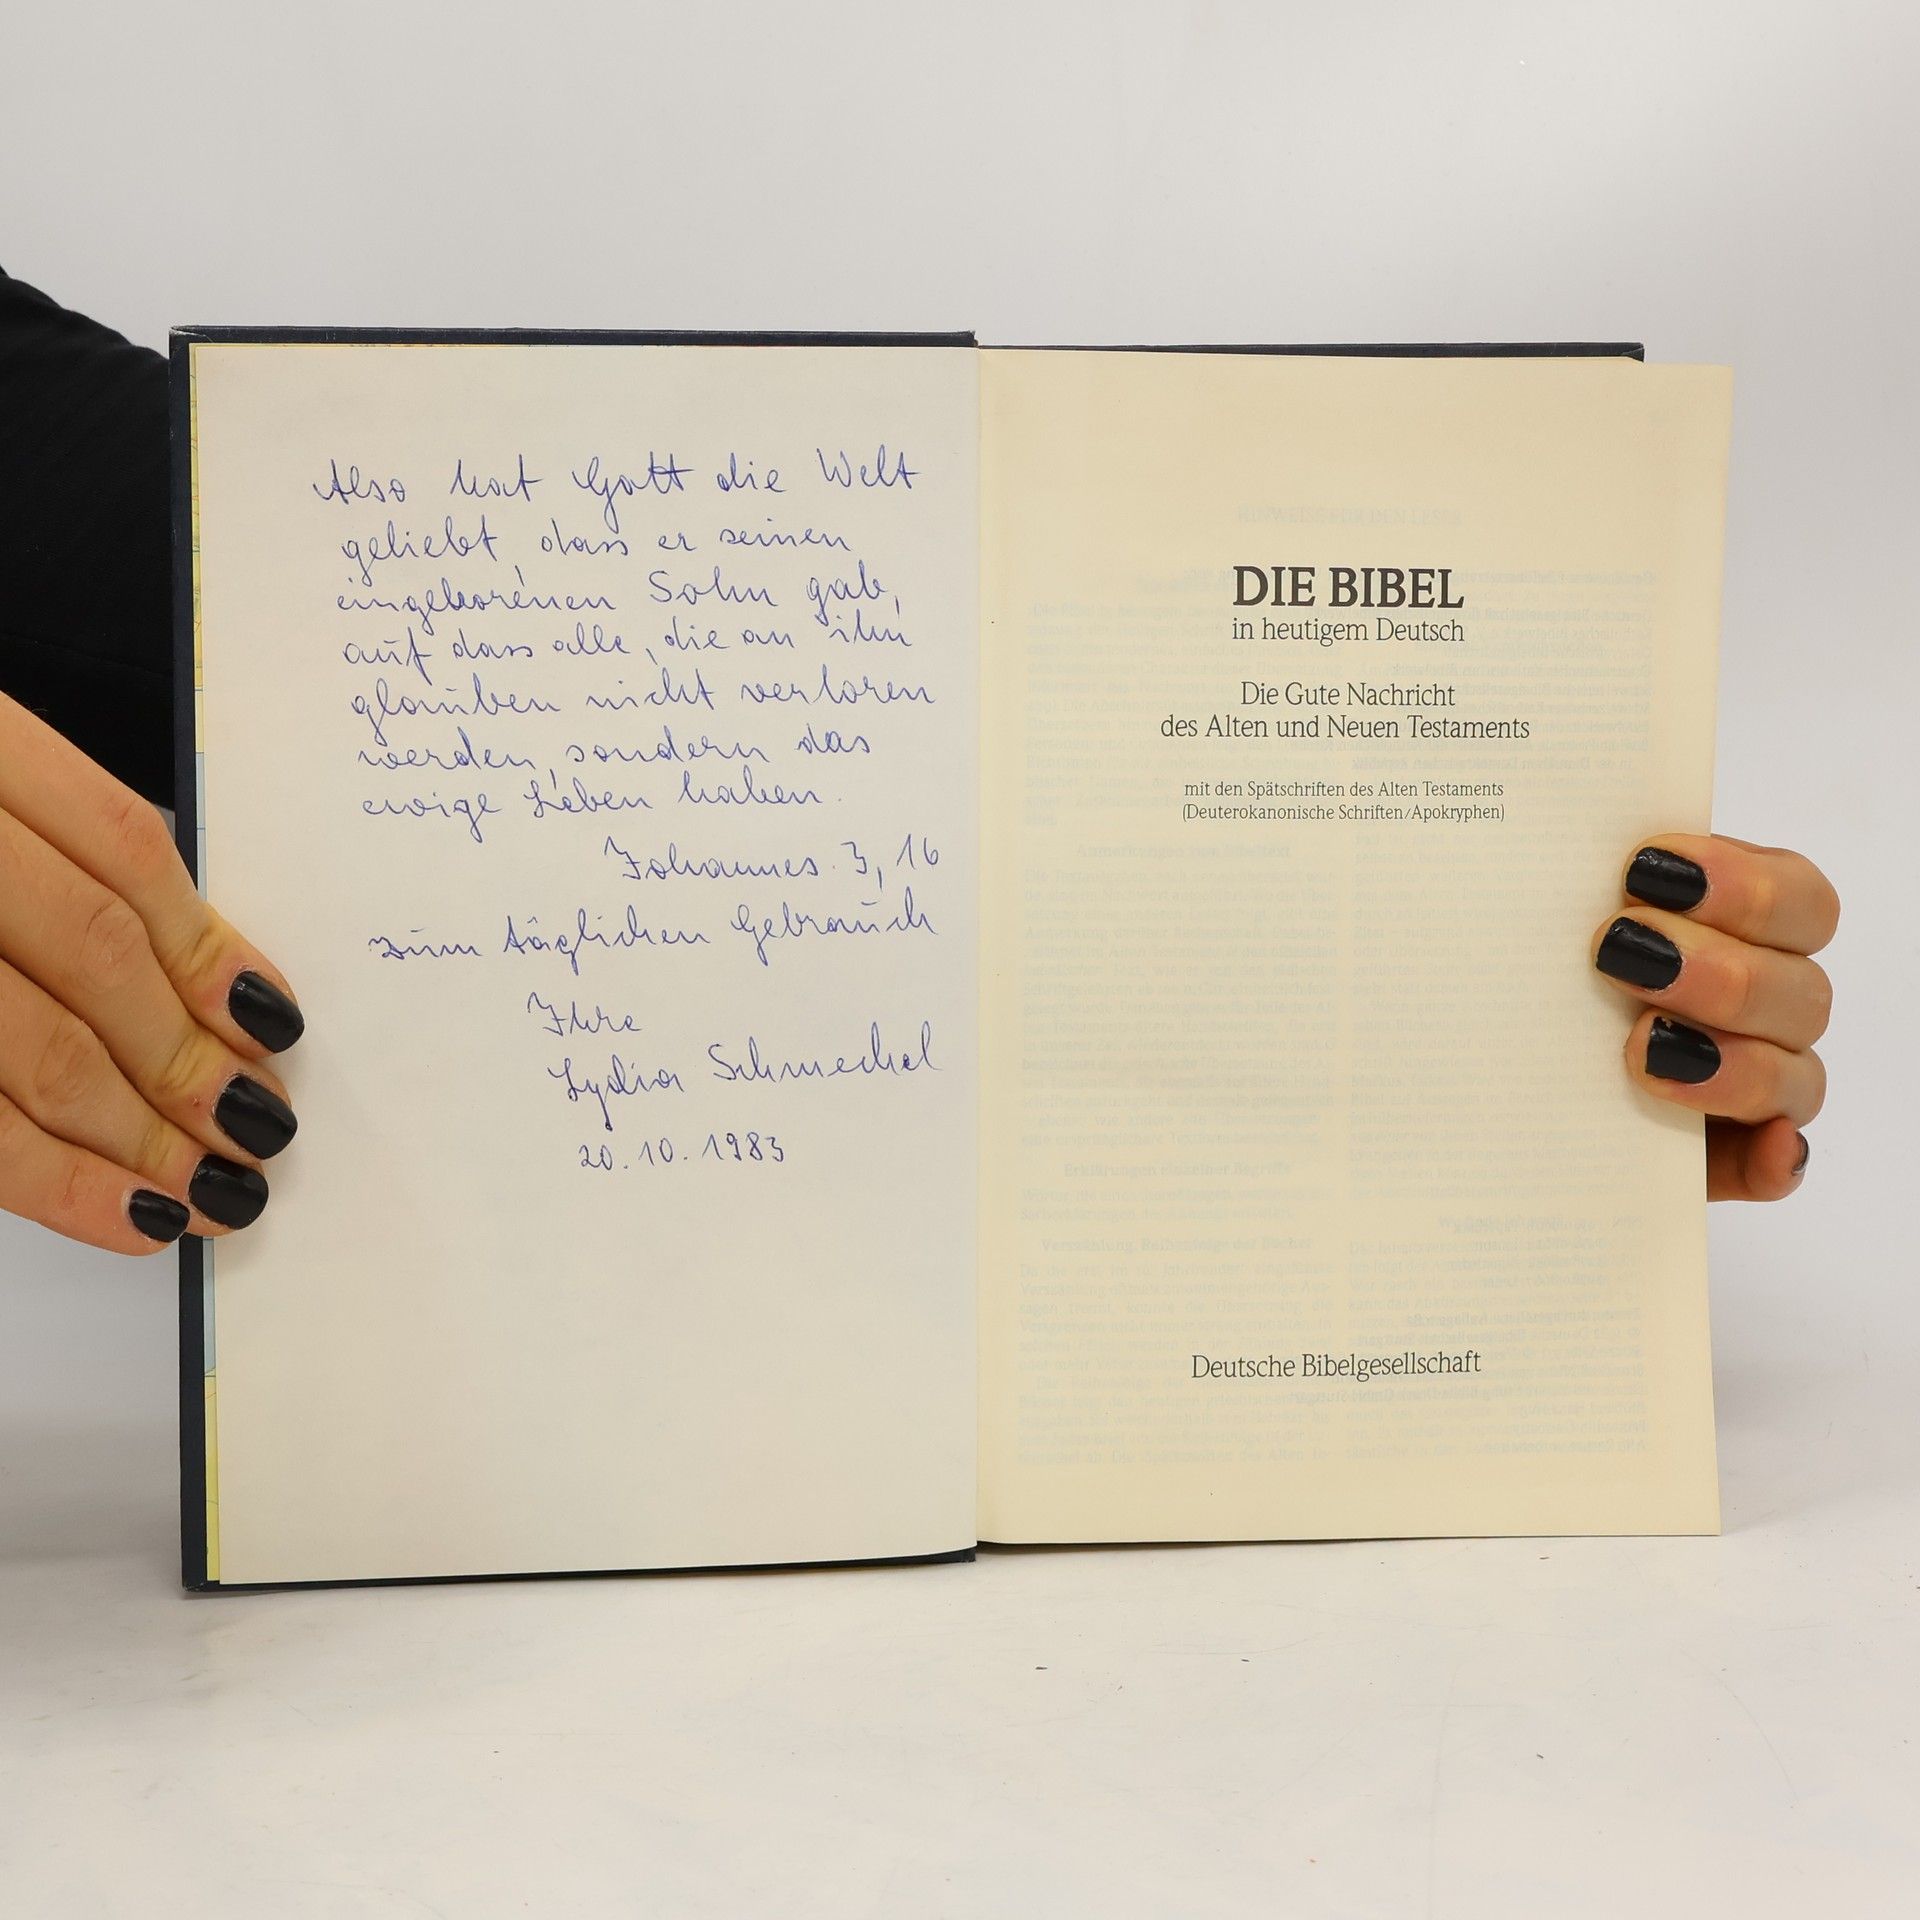 Also hat Gott die Welt
geliebt, dass er seinen
eingeborenen Sohn gab,
auf dass alle, die an ihn
glauben nicht verloren
werden, sondern das
ewige Leben haben.
Johannes. 3, 16
zum täglichen Gebrauch
Ihre
Lydia Schmeckel
20. 10. 1983
DIE BIBEL
in heutigem Deutsch
Die Gute Nachricht
des Alten und Neuen Testaments
mit den Spätschriften des Alten Testaments
(Deuterokanonische Schriften/Apokryphen)
Deutsche Bibelgesellschaft